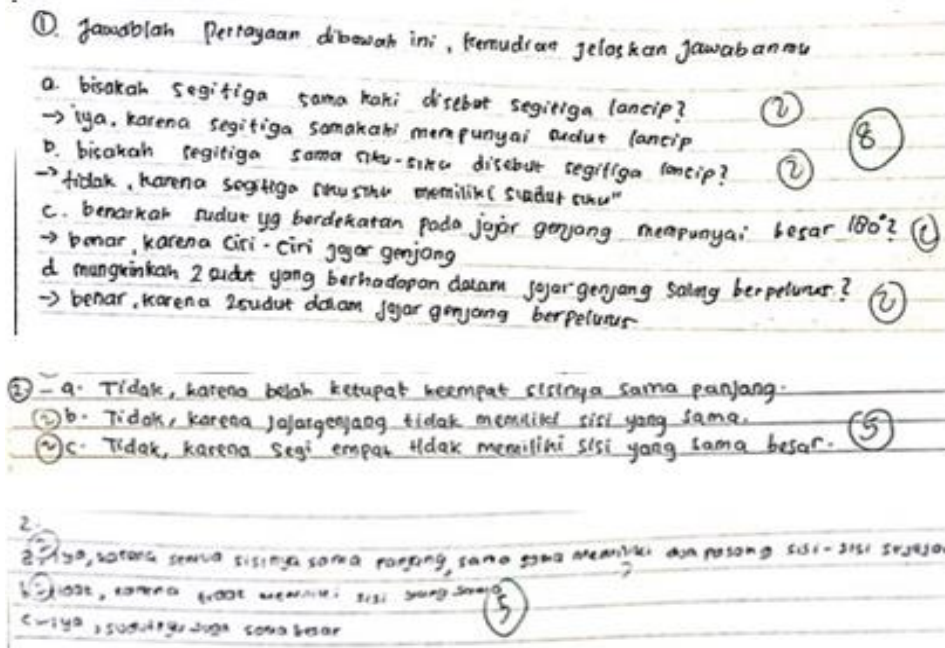 ① Jawablah Pertayaan dibawah ini, kemudian jelaskan jawabanmu
a. bisakah segitiga sama kaki disebut segitiga lancip? ②
→ iya, karena segitiga samakaki mempunyai sudut lancip ⑧
b. bisakah segitiga sama siku-siku disebut segitiga lancip? ②
→ tidak, karena segitiga siku siku memiliki sudut siku"
c. benarkah sudut yg berdekatan pada jajar genjang mempunyai besar 180°?
→ benar, karena ciri-ciri jajar genjang
d mungkinkah 2 sudut yang berhadapan dalam jajar genjang saling berpelurus? ②
→ benar, karena 2 sudut dalam jajar genjang berpelurus
② - a. Tidak, karena belah ketupat keempat sisinya sama panjang.
② b. Tidak, karena jajargenjang tidak memiliki sisi yang sama. ⑤
② c. Tidak, karena segi empat tidak memiliki sisi yang sama besar.
2.
a iya, karena semua sisinya sama panjang, sama memiliki dua pasang sisi-sisi sejajar
b tidak, karena tidak memiliki sisi yang sama ⑤
c - iya, sudutnya juga sama besar